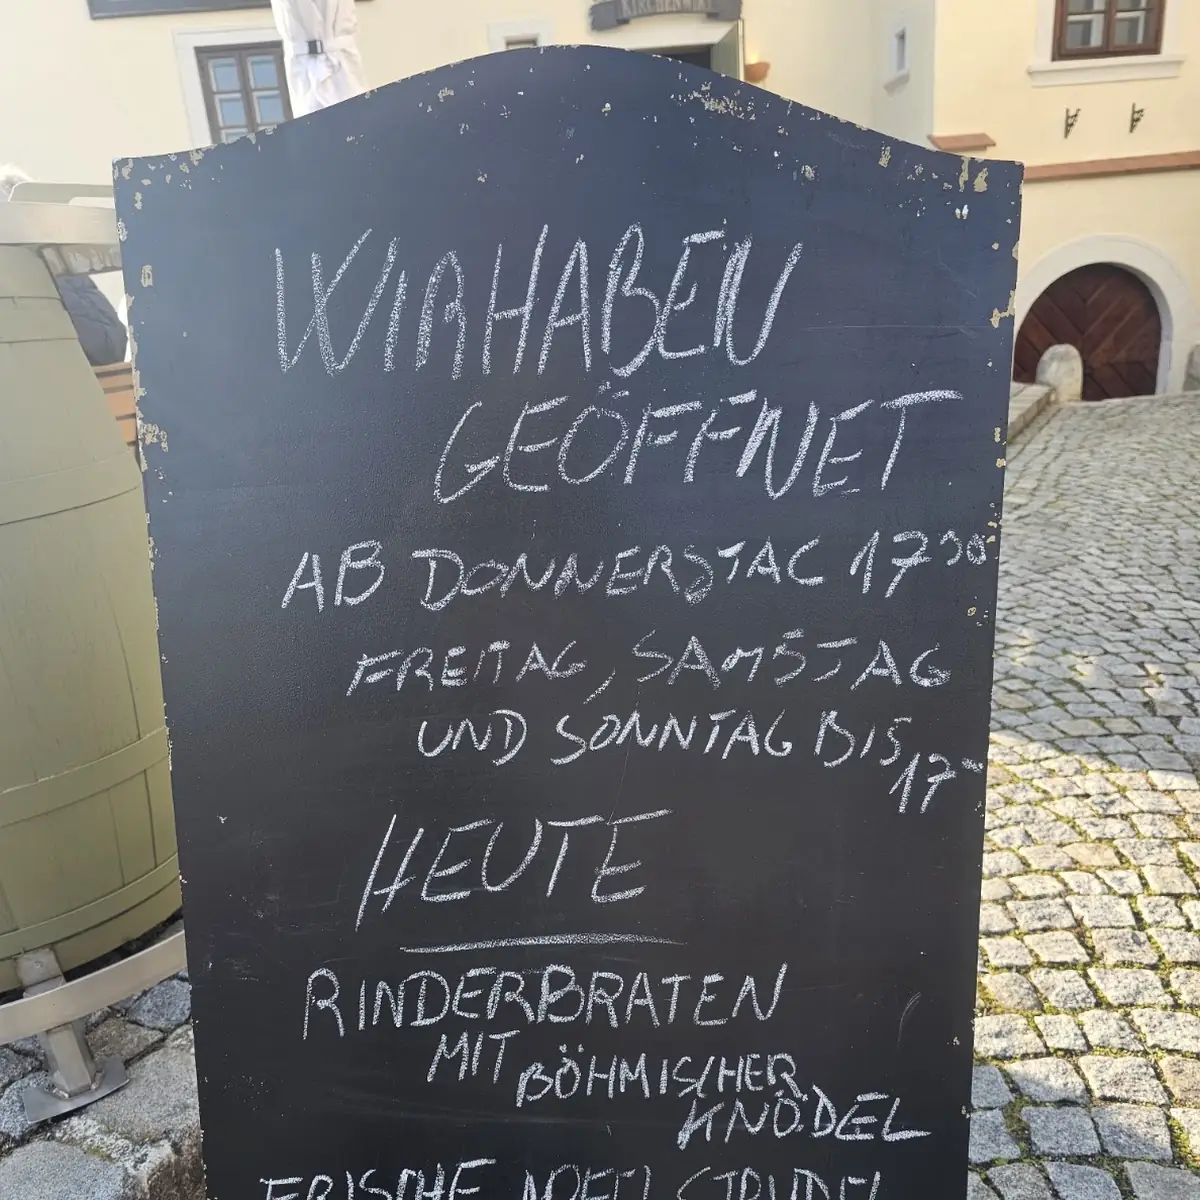 KIRCHENWIRT
WIR HABEN
GEÖFFNET
AB DONNERSTAG 17³⁰
FREITAG, SAMSTAG
UND SONNTAG BIS
17⁻
HEUTE
RINDERBRATEN
MIT BÖHMISCHER
KNÖDEL
FRISCHE APFELSTRUDEL